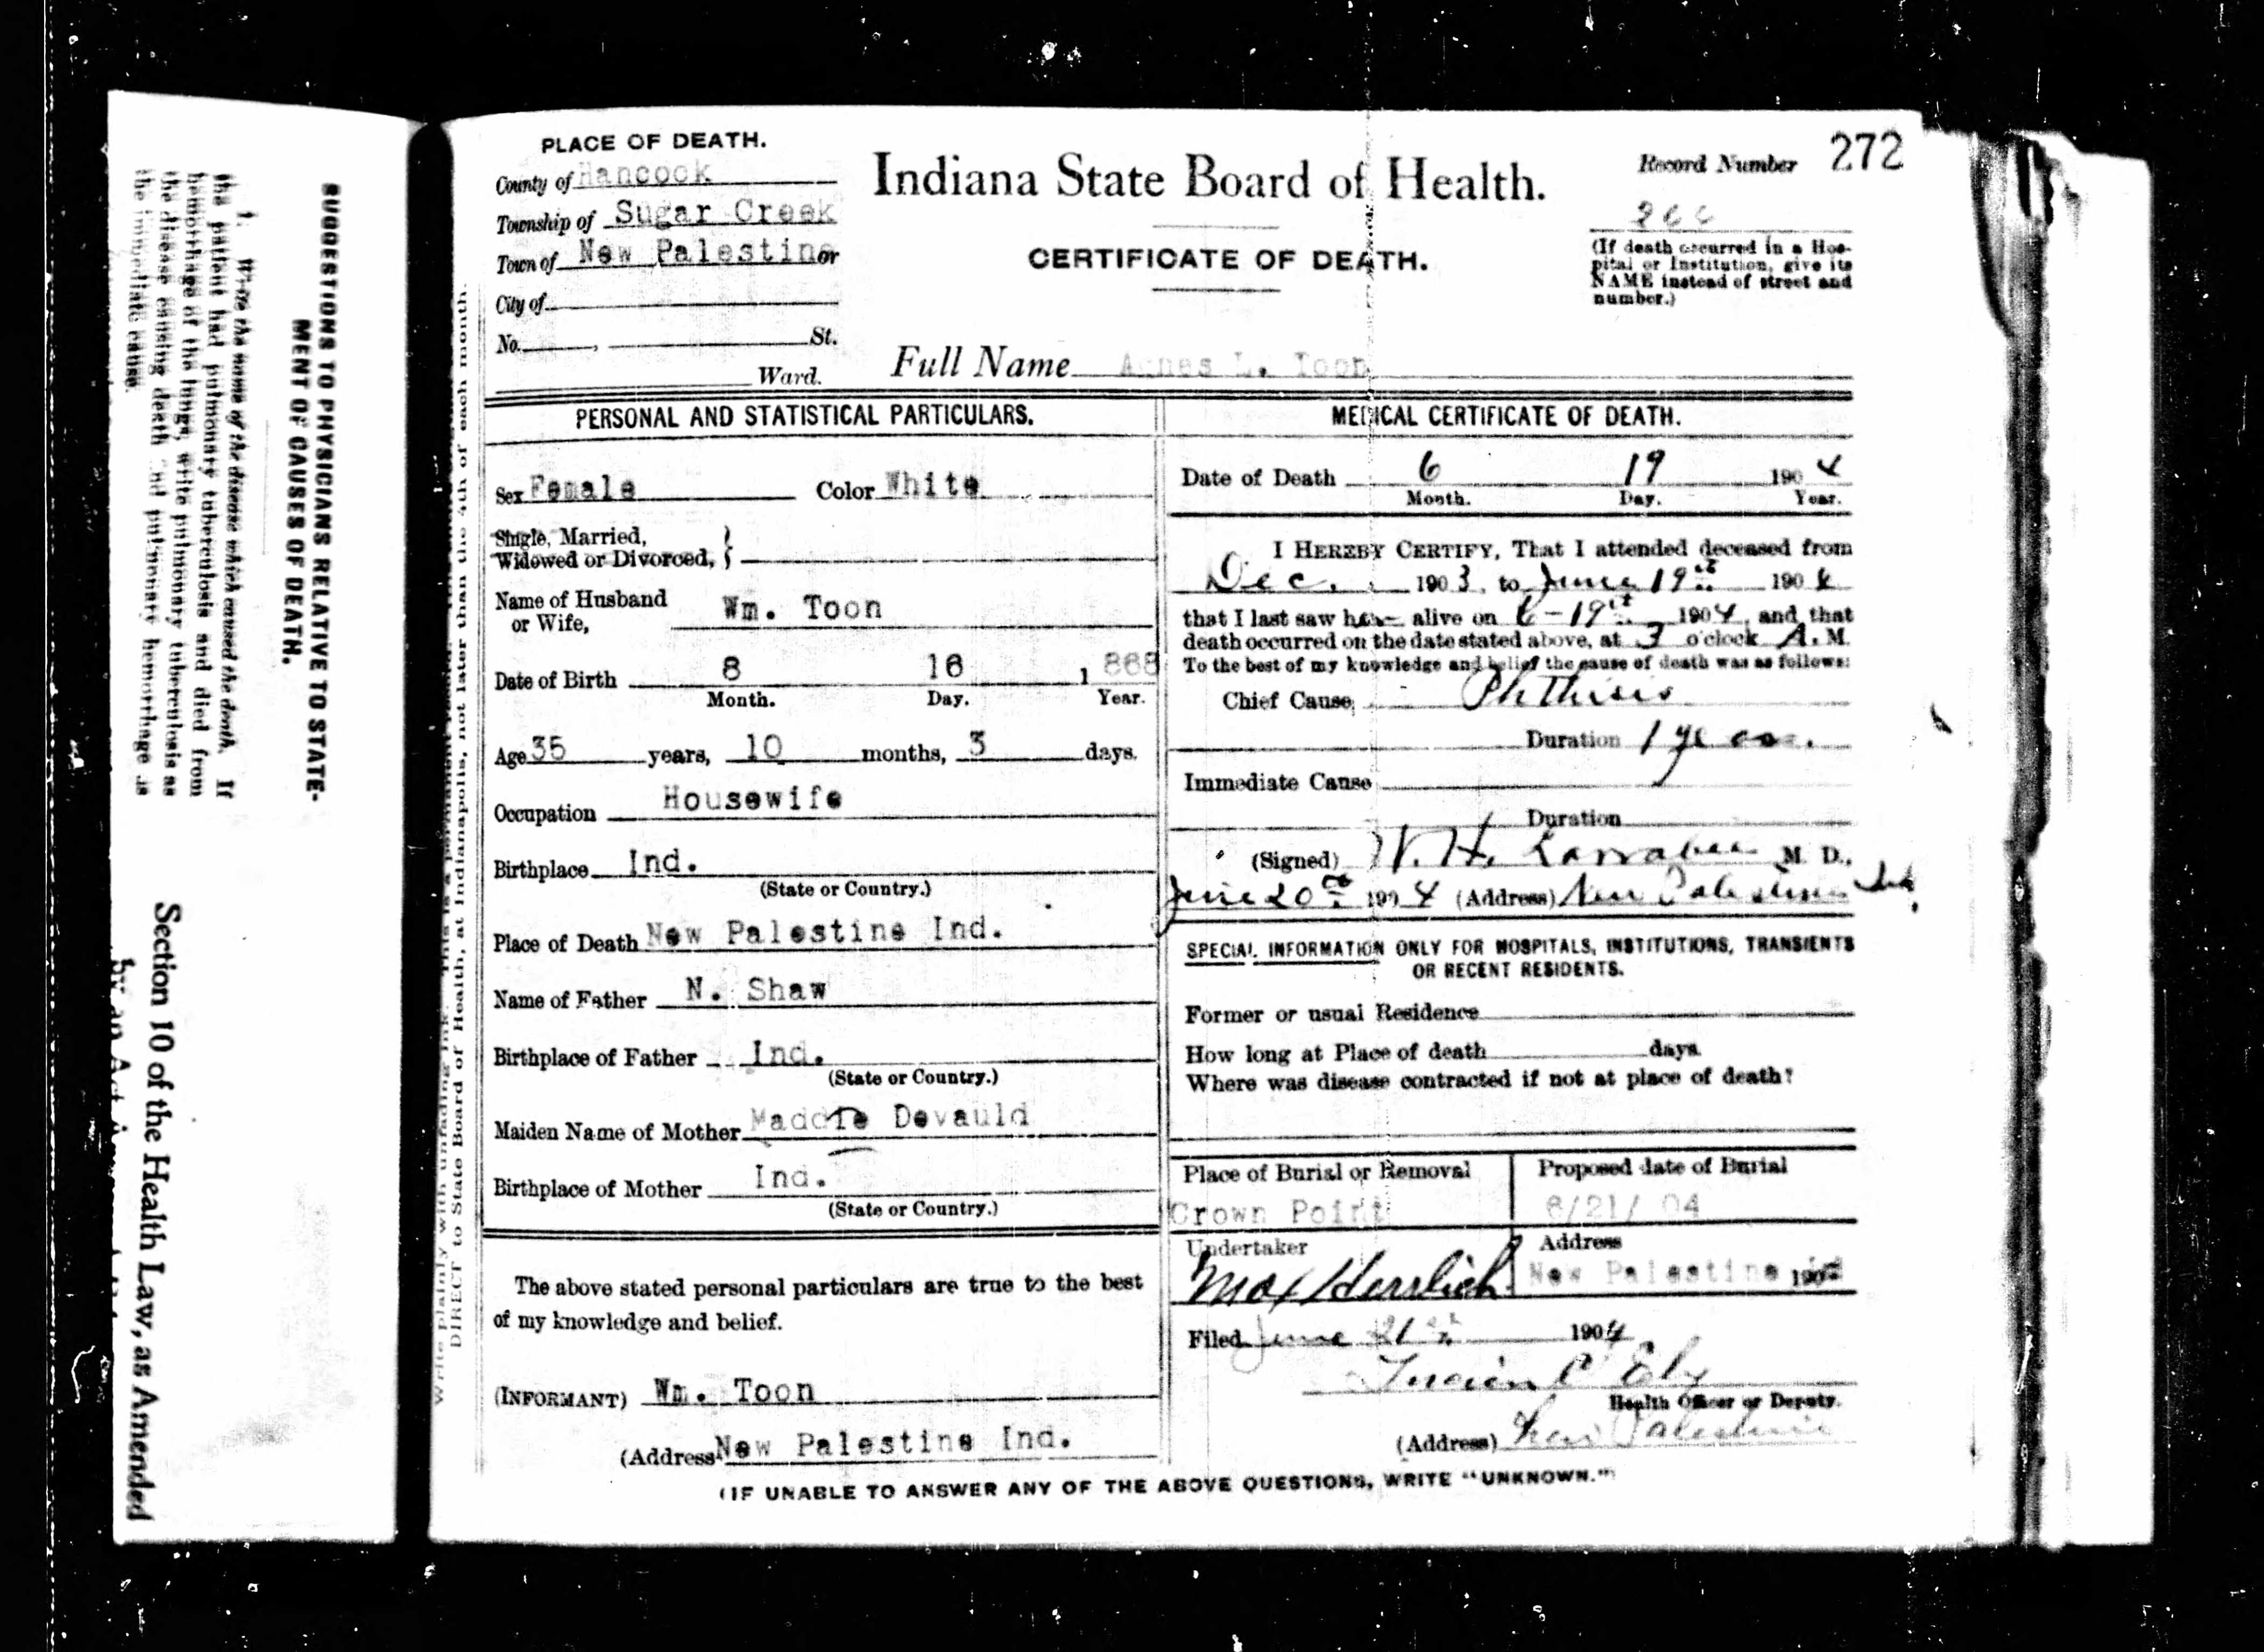 PLACE OF DEATH.
County of Hancock
Township of Sugar Creek
Town of New Palestine or
City of
No. , St.
Ward.
Indiana State Board of Health.
CERTIFICATE OF DEATH.
Record Number 272
(If death occurred in a Hos-
pital or Institution, give its
NAME instead of street and
number.)
Full Name Agnes L. Toon
PERSONAL AND STATISTICAL PARTICULARS.
Sex Female Color White
Single, Married,
Widowed or Divorced, }
Name of Husband
or Wife, Wm. Toon
Date of Birth 8 16 1868
Month. Day. Year.
Age 35 years, 10 months, 3 days.
Occupation Housewife
Birthplace Ind.
(State or Country.)
Place of Death New Palestine Ind.
Name of Father N. Shaw
Birthplace of Father Ind.
(State or Country.)
Maiden Name of Mother Devauld
Birthplace of Mother Ind.
(State or Country.)
The above stated personal particulars are true to the best
of my knowledge and belief.
(INFORMANT) Wm. Toon
(Address New Palestine Ind.
MEDICAL CERTIFICATE OF DEATH.
Date of Death 6 19 1904
Month. Day. Year.
I HEREBY CERTIFY, That I attended deceased from
Dec. 1903, to June 19th 1904
that I last saw her alive on 6-19th 1904, and that
death occurred on the date stated above, at 3 o'clock A. M.
To the best of my knowledge and belief the cause of death was as follows:
Chief Cause, Phthisis
Duration 1 year.
Immediate Cause
Duration
(Signed) W. H. Larrabee M. D.,
June 20th 1904 (Address) New Palestine Ind.
SPECIAL INFORMATION ONLY FOR HOSPITALS, INSTITUTIONS, TRANSIENTS
OR RECENT RESIDENTS.
Former or usual Residence
How long at Place of death days
Where was disease contracted if not at place of death?
Place of Burial or Removal
Crown Point
Proposed date of Burial
6/21/ 04
Undertaker
Max Herrlich
Address
New Palestine 190
Filed June 21st 1904
Lucian C Ely
Health Officer or Deputy.
(Address) New Palestine
(IF UNABLE TO ANSWER ANY OF THE ABOVE QUESTIONS, WRITE "UNKNOWN.")
DIRECT to State Board of Health, at Indianapolis, not later than the 4th of each month.
SUGGESTIONS TO PHYSICIANS RELATIVE TO STATE-
MENT OF CAUSES OF DEATH.
1. Write the name of the disease which caused the death. If
the patient had pulmonary tuberculosis and died from
hemorrhage of the lungs, write pulmonary tuberculosis as
the disease causing death and pulmonary hemorrhage as
the immediate cause.
Section 10 of the Health Law, as Amended